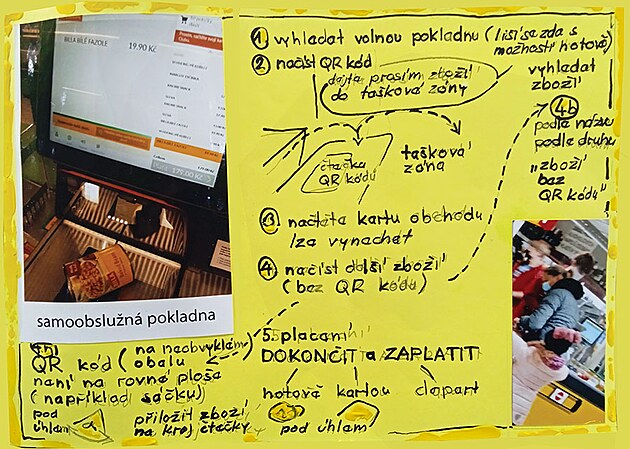 BILLA BÍLÉ FAZOLE 19.90 Kč
175.00 Kč
samoobslužná pokladna
① vyhledat volnou pokladnu (liší se zda s
možností hotově)
② načíst QR kód
dejte prosím zboží
do taškové zóny
čtečka
QR kódů
tašková
zóna
③ načtěte kartu obchodu
lza vynechat
④ načíst další zboží
(bez QR kódu)
vyhledat
zboží
4b
podle názvu
podle druhu
"zboží
bez
QR kódu"
QR kód (na neobvyklém
obalu
není na rovné ploše
(například sáčku)
pod
úhlem
přiložit zboží
na kraj čtečky
5. placení
DOKONČIT a ZAPLATIT
hotově kartou
pod úhlem